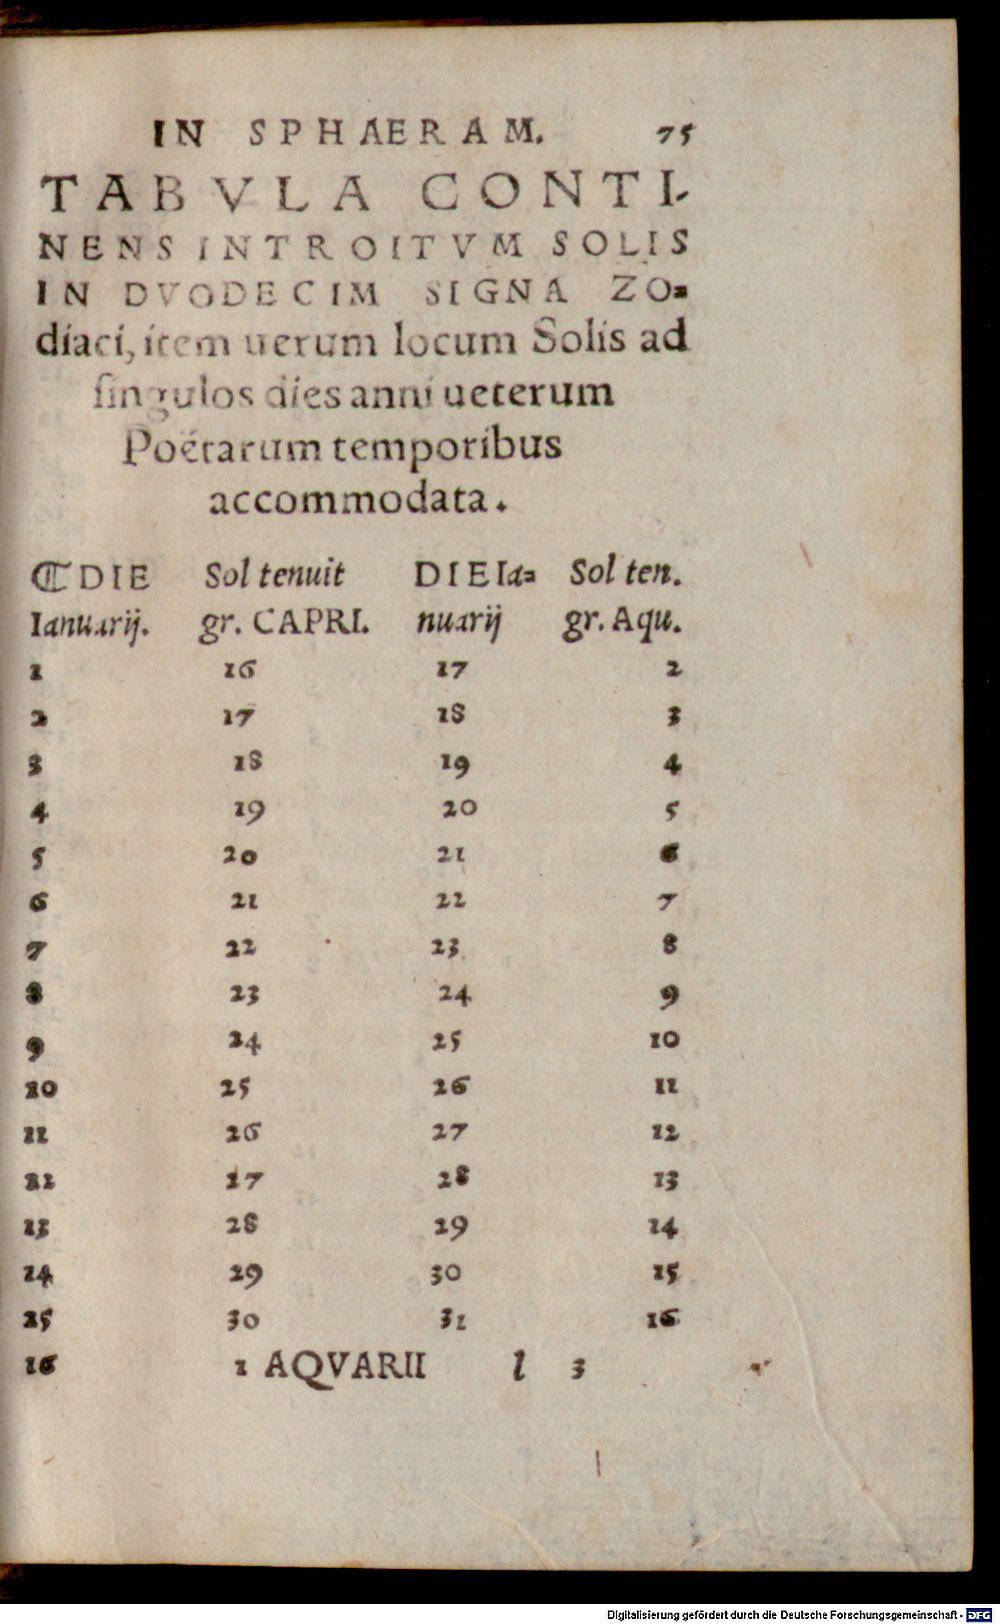 IN SPHAERAM. 75
TABVLA CONTI-
NENS INTROITVM SOLIS
IN DVODECIM SIGNA ZO=
diaci, item uerum locum Solis ad
singulos dies anni ueterum
Poëtarum temporibus
accommodata.
⁋DIE Sol tenuit DIE Ia= Sol ten.
Ianuarij. gr. CAPRI. nuarij gr. Aqu.
1 16 17 2
2 17 18 3
3 18 19 4
4 19 20 5
5 20 21 6
6 21 22 7
7 22 23 8
8 23 24 9
9 24 25 10
10 25 26 11
11 26 27 12
12 17 28 13
13 28 29 14
14 29 30 15
15 30 31 16
16 1 AQVARII l 3
Digitalisierung gefördert durch die Deutsche Forschungsgemeinschaft - DFG